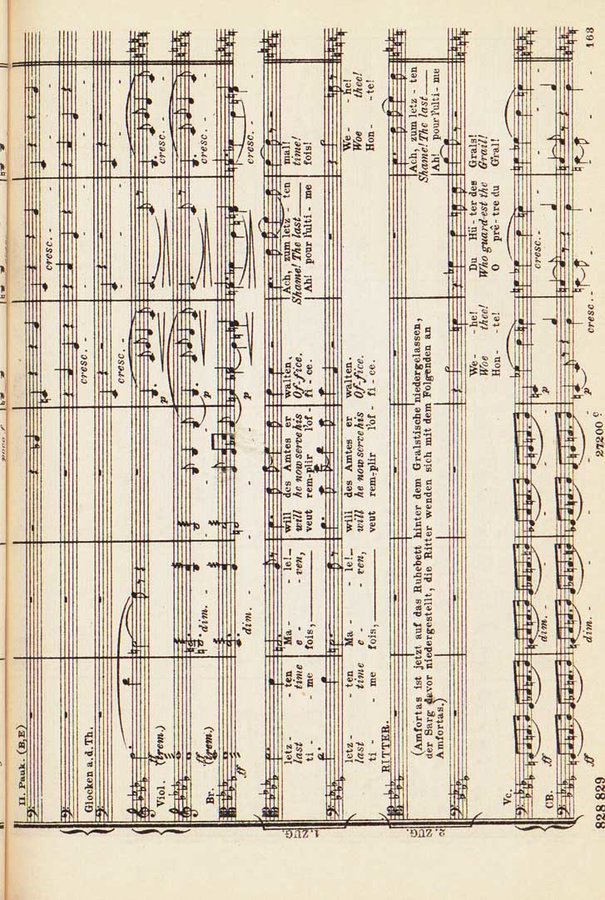 II. Pauk. (B, E)
cresc. -
cresc. -
Glocken a. d. Th.
cresc. -
Viol. (Trem.)
ff
dim. -
p
cresc.
(Trem.)
cresc.
Br.
ff
dim. -
p
cresc.
1. ZUG.
letz - - ten Ma - - le! — will des Amtes er walten. Ach, zum letz - ten mal!
last time e - - ven, will he now serve his Of-fice. Shame! The last — time!
ti - - me fois, — veut rem-plir l'of - fi - ce. Ah! pour l'ulti - me fois!
letz - - ten Ma - - le! — will des Amtes er walten. We - - he!
last time e - - ven, will he now serve his Of-fice. Woe thee!
ti - - me fois, veut rem-plir l'of - fi - ce. Hon - - te!
RITTER.
2. ZUG.
Ach, zum letz - ten
Shame! The last —
Ah! pour l'ulti - me
(Amfortas ist jetzt auf das Ruhebett hinter dem Gralstische niedergelassen,
der Sarg davor niedergestellt, die Ritter wenden sich mit dem Folgenden an
Amfortas.)
We - he! Du Hü - ter des Grals!
Woe thee! Who guard-est the Grail!
Hon - te! O prê - tre du Gral!
Vc.
ff
dim.
p
cresc. -
CB.
ff
dim. -
p
cresc. -
828 829
27200
163